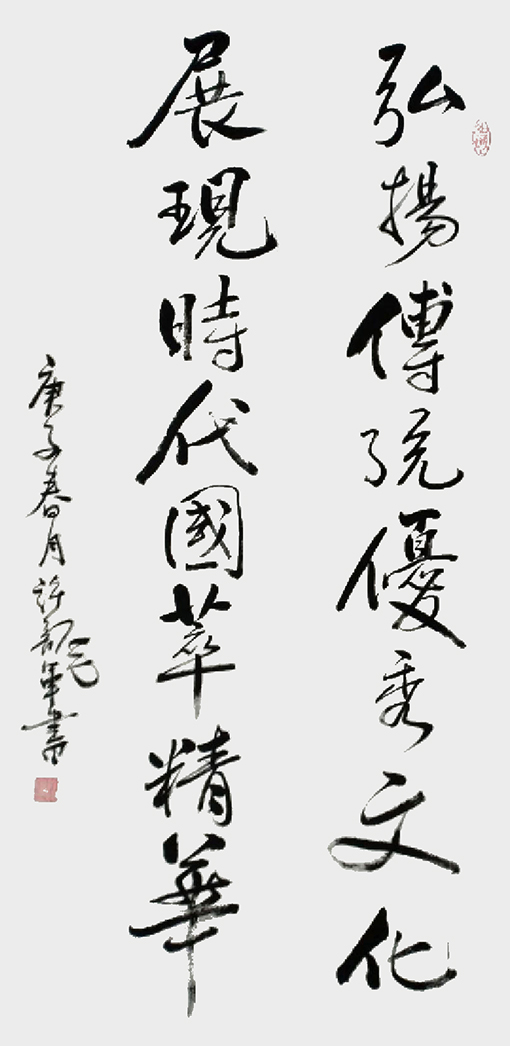 弘揚傳統優秀文化
展現時代國萃精華
庚子春月許龍軍書